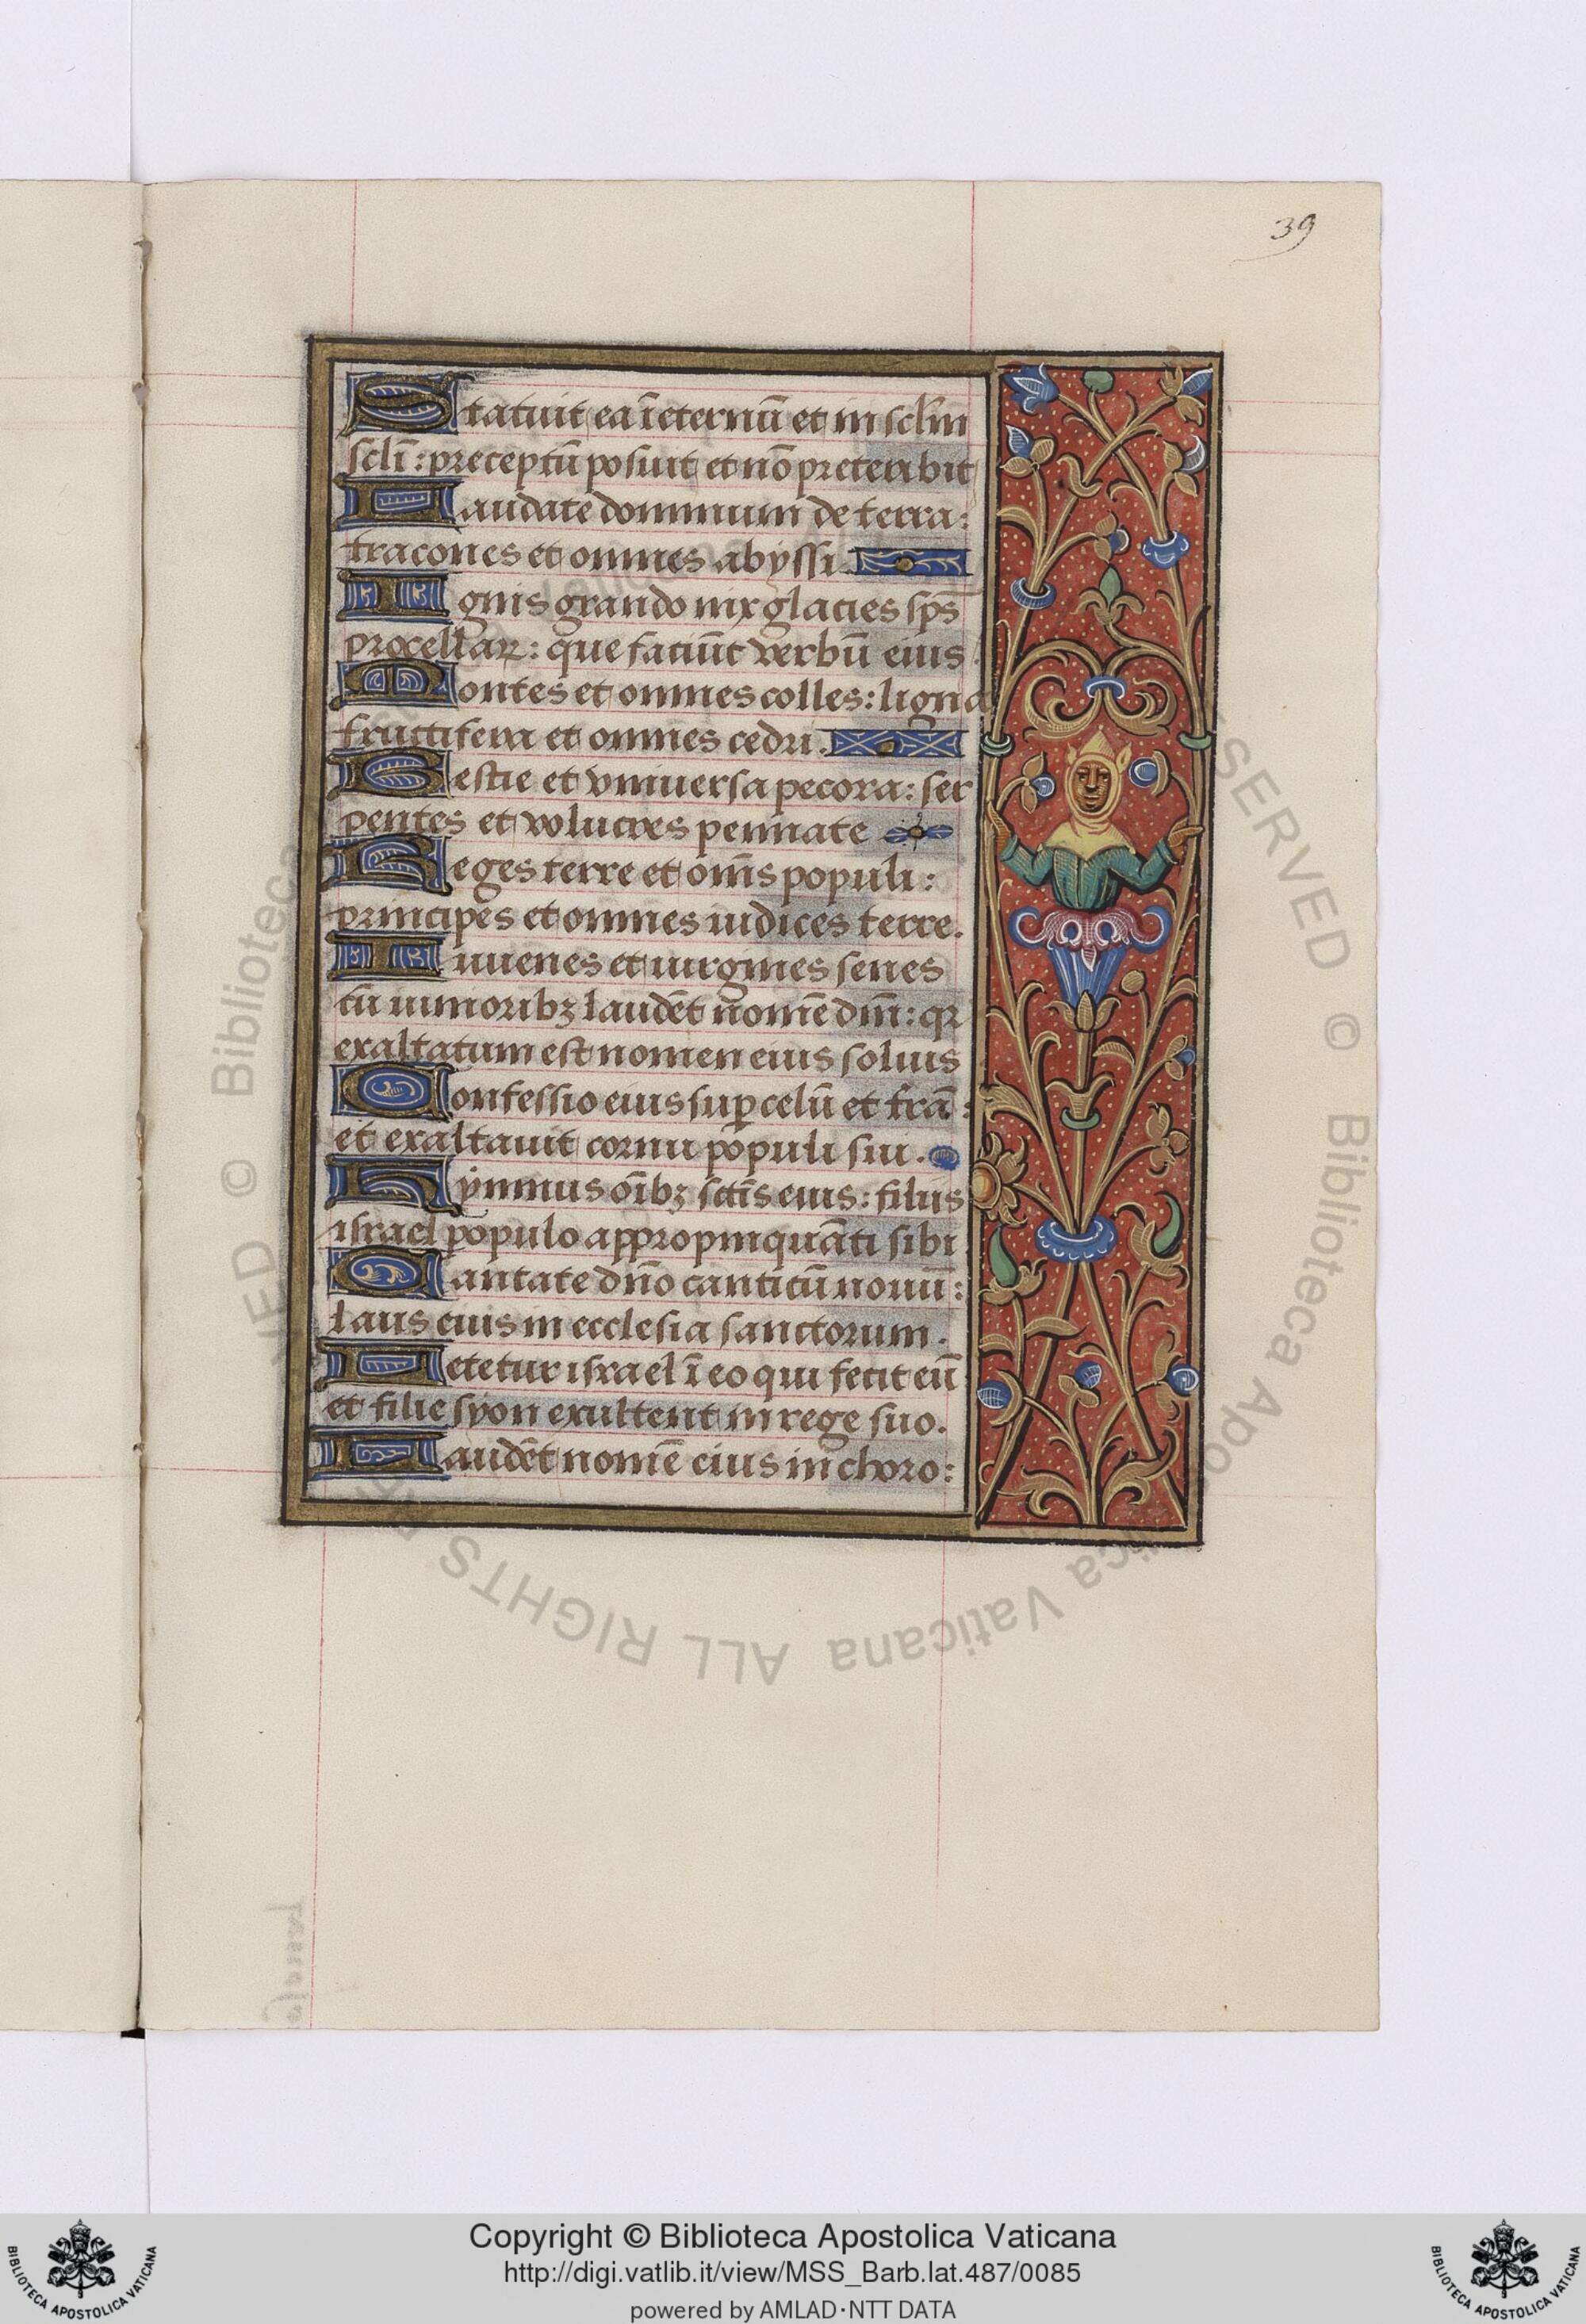 39
Statuit ea ī eternū et in sclm̄
sclī : preceptū posuit et nō preteribit
Laudate dominum de terra :
tracones et omnes abyssi.
Ignis grando nix glacies sps̄
procellaꝝ : que faciūt verbū eius.
Montes et omnes colles : ligna
fructifera et omnes cedri.
Bestie et vniuersa pecora : ser
pentes et volucres pennate
Reges terre et om̄s populi :
principes et omnes iudices terre.
Iuuenes et uirgines senes
cū iunioribꝫ laudēt nomē dn̄i : qꝛ
exaltatum est nomen eius solius
Confessio eius suꝑ celū et trā :
et exaltauit cornu populi sui.
Hymnus oībꝫ sctīs eius : filiis
israel populo appropinquāti sibi
Cantate dn̄o canticū nouū :
laus eius in ecclesia sanctorum.
Letetur israel ī eo qui fecit eū
et filie syon exultent in rege suo.
Laudēt nomē eius in choro :
Copyright © Biblioteca Apostolica Vaticana
http://digi.vatlib.it/view/MSS_Barb.lat.487/0085
powered by AMLAD·NTT DATA
BIBLIOTECA APOSTOLICA VATICANA
BIBLIOTECA APOSTOLICA VATICANA